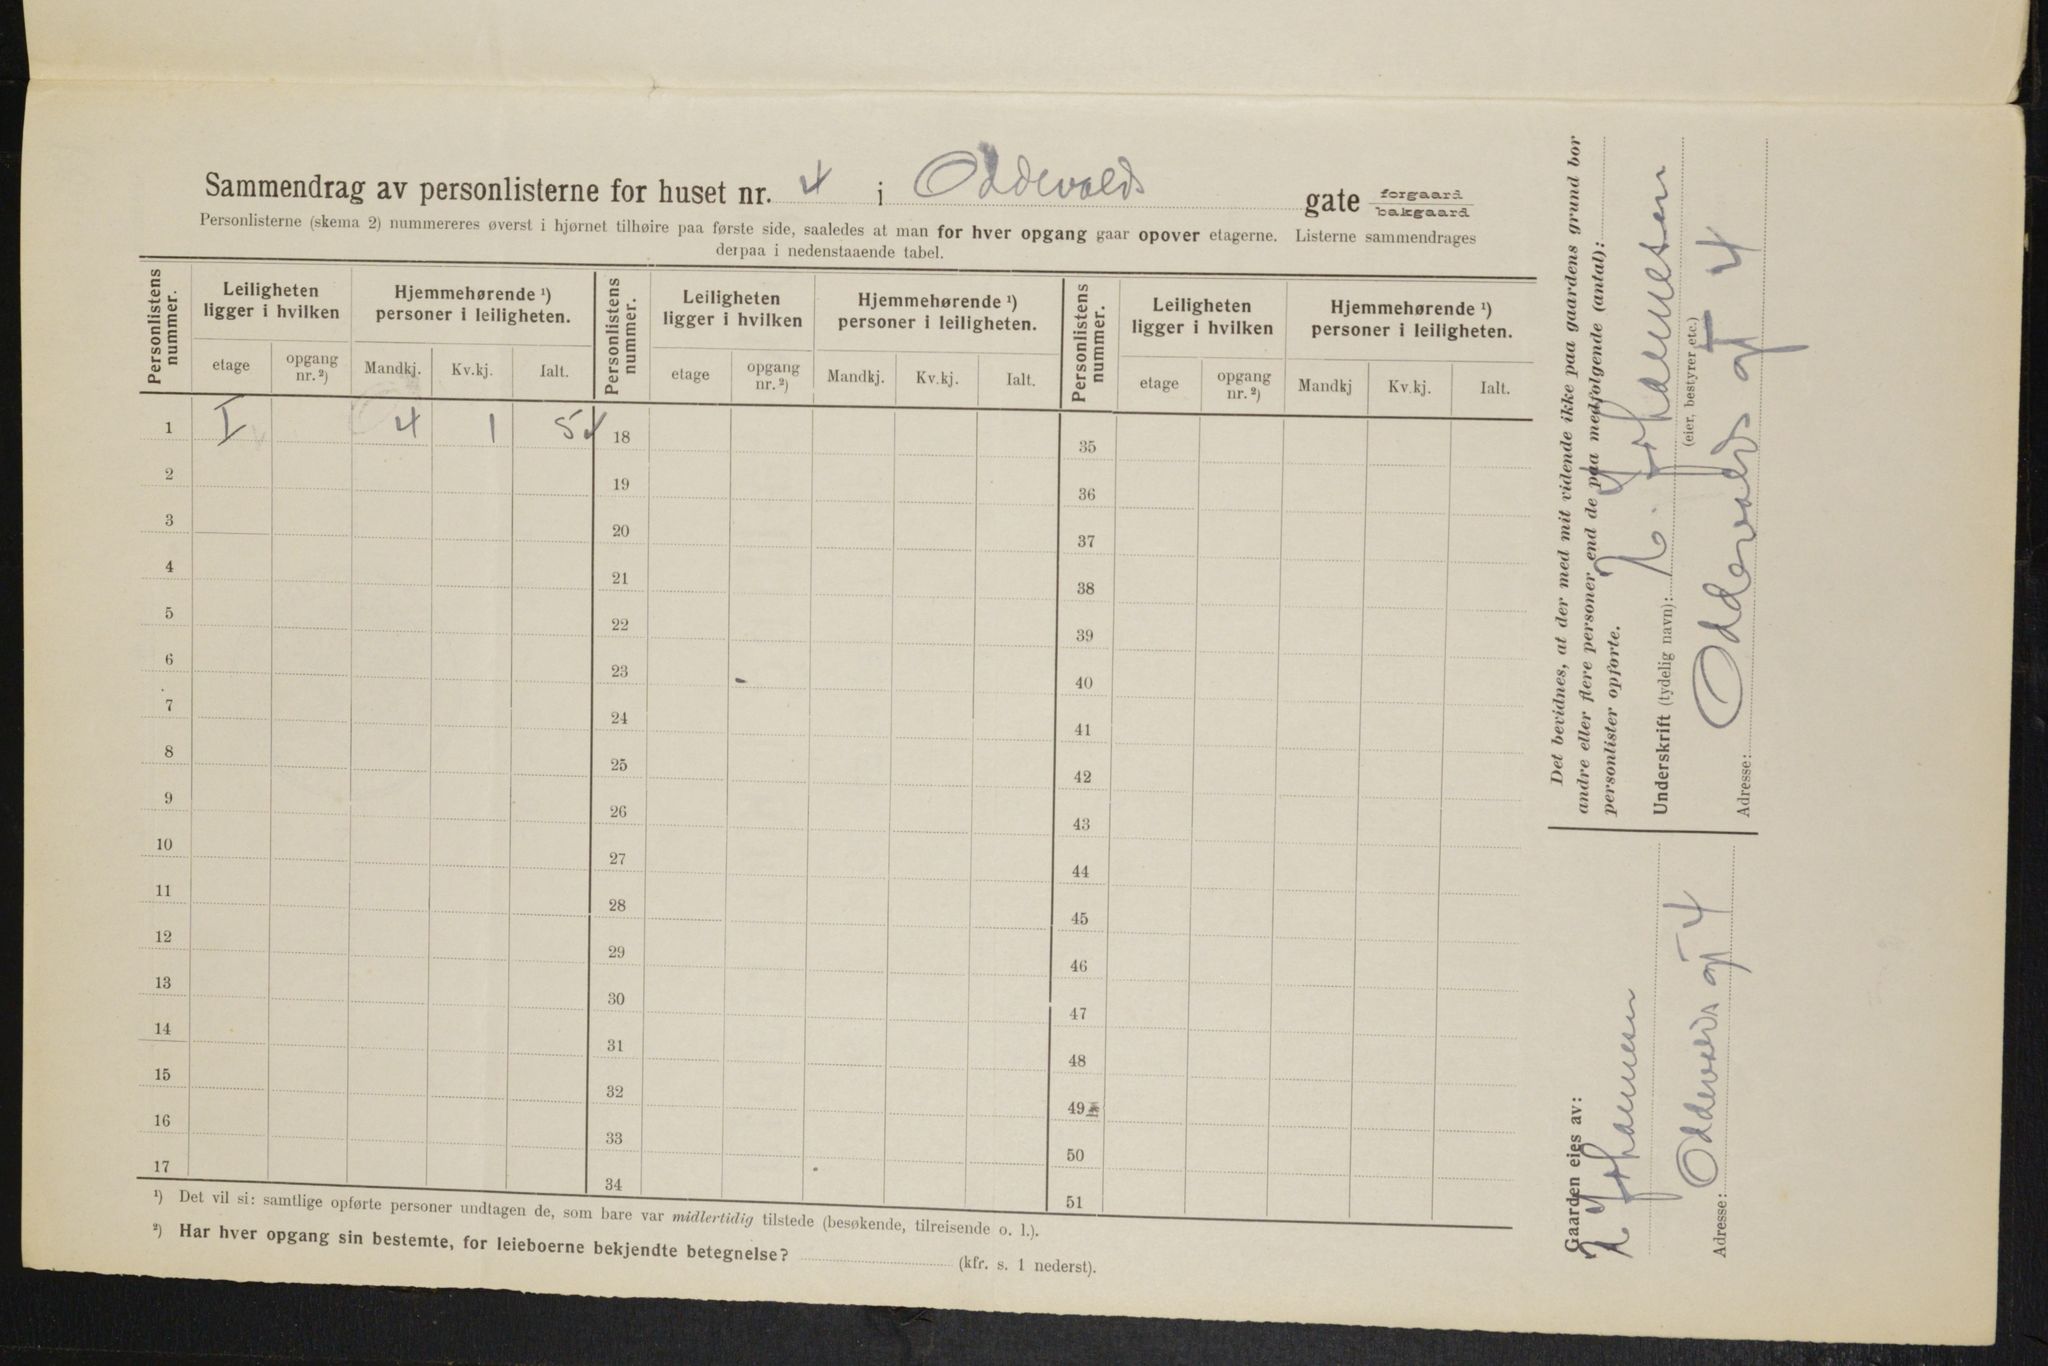 Sammendrag av personlisterne for huset nr. 4 i Oddevolds gate forgaard bakgaard
Personlisterne (skema 2) nummereres øverst i hjørnet tilhøire paa første side, saaledes at man for hver opgang gaar opover etagerne. Listerne sammendrages
derpaa i nedenstaaende tabel.
Personlistens nummer. Leiligheten ligger i hvilken Hjemmehørende ¹) personer i leiligheten. Personlistens nummer. Leiligheten ligger i hvilken Hjemmehørende ¹) personer i leiligheten. Personlistens nummer. Leiligheten ligger i hvilken Hjemmehørende ¹) personer i leiligheten.
etage opgang nr. ²) Mandkj. Kv.kj. Ialt. etage opgang nr. ²) Mandkj. Kv.kj. Ialt. etage opgang nr. ²) Mandkj Kv.kj. Ialt.
1 I 4 1 5 18 35
2 19 36
3 20 37
4 21 38
5 22 39
6 23 40
7 24 41
8 25 42
9 26 43
10 27 44
11 28 45
12 29 46
13 30 47
14 31 48
15 32 49
16 33 50
17 34 51
¹) Det vil si: samtlige opførte personer undtagen de, som bare var midlertidig tilstede (besøkende, tilreisende o. l.).
²) Har hver opgang sin bestemte, for leieboerne bekjendte betegnelse? (kfr. s. 1 nederst).
Det bevidnes, at der med mit vidende ikke paa gaardens grund bor
andre eller flere personer end de paa medfølgende (antal):
personlister opførte.
Underskrift (tydelig navn): Johannesen
(eier, bestyrer etc.)
Adresse: Oddevolds gt 4
Gaarden eies av:
Johannesen
Adresse: Oddevolds gt 4